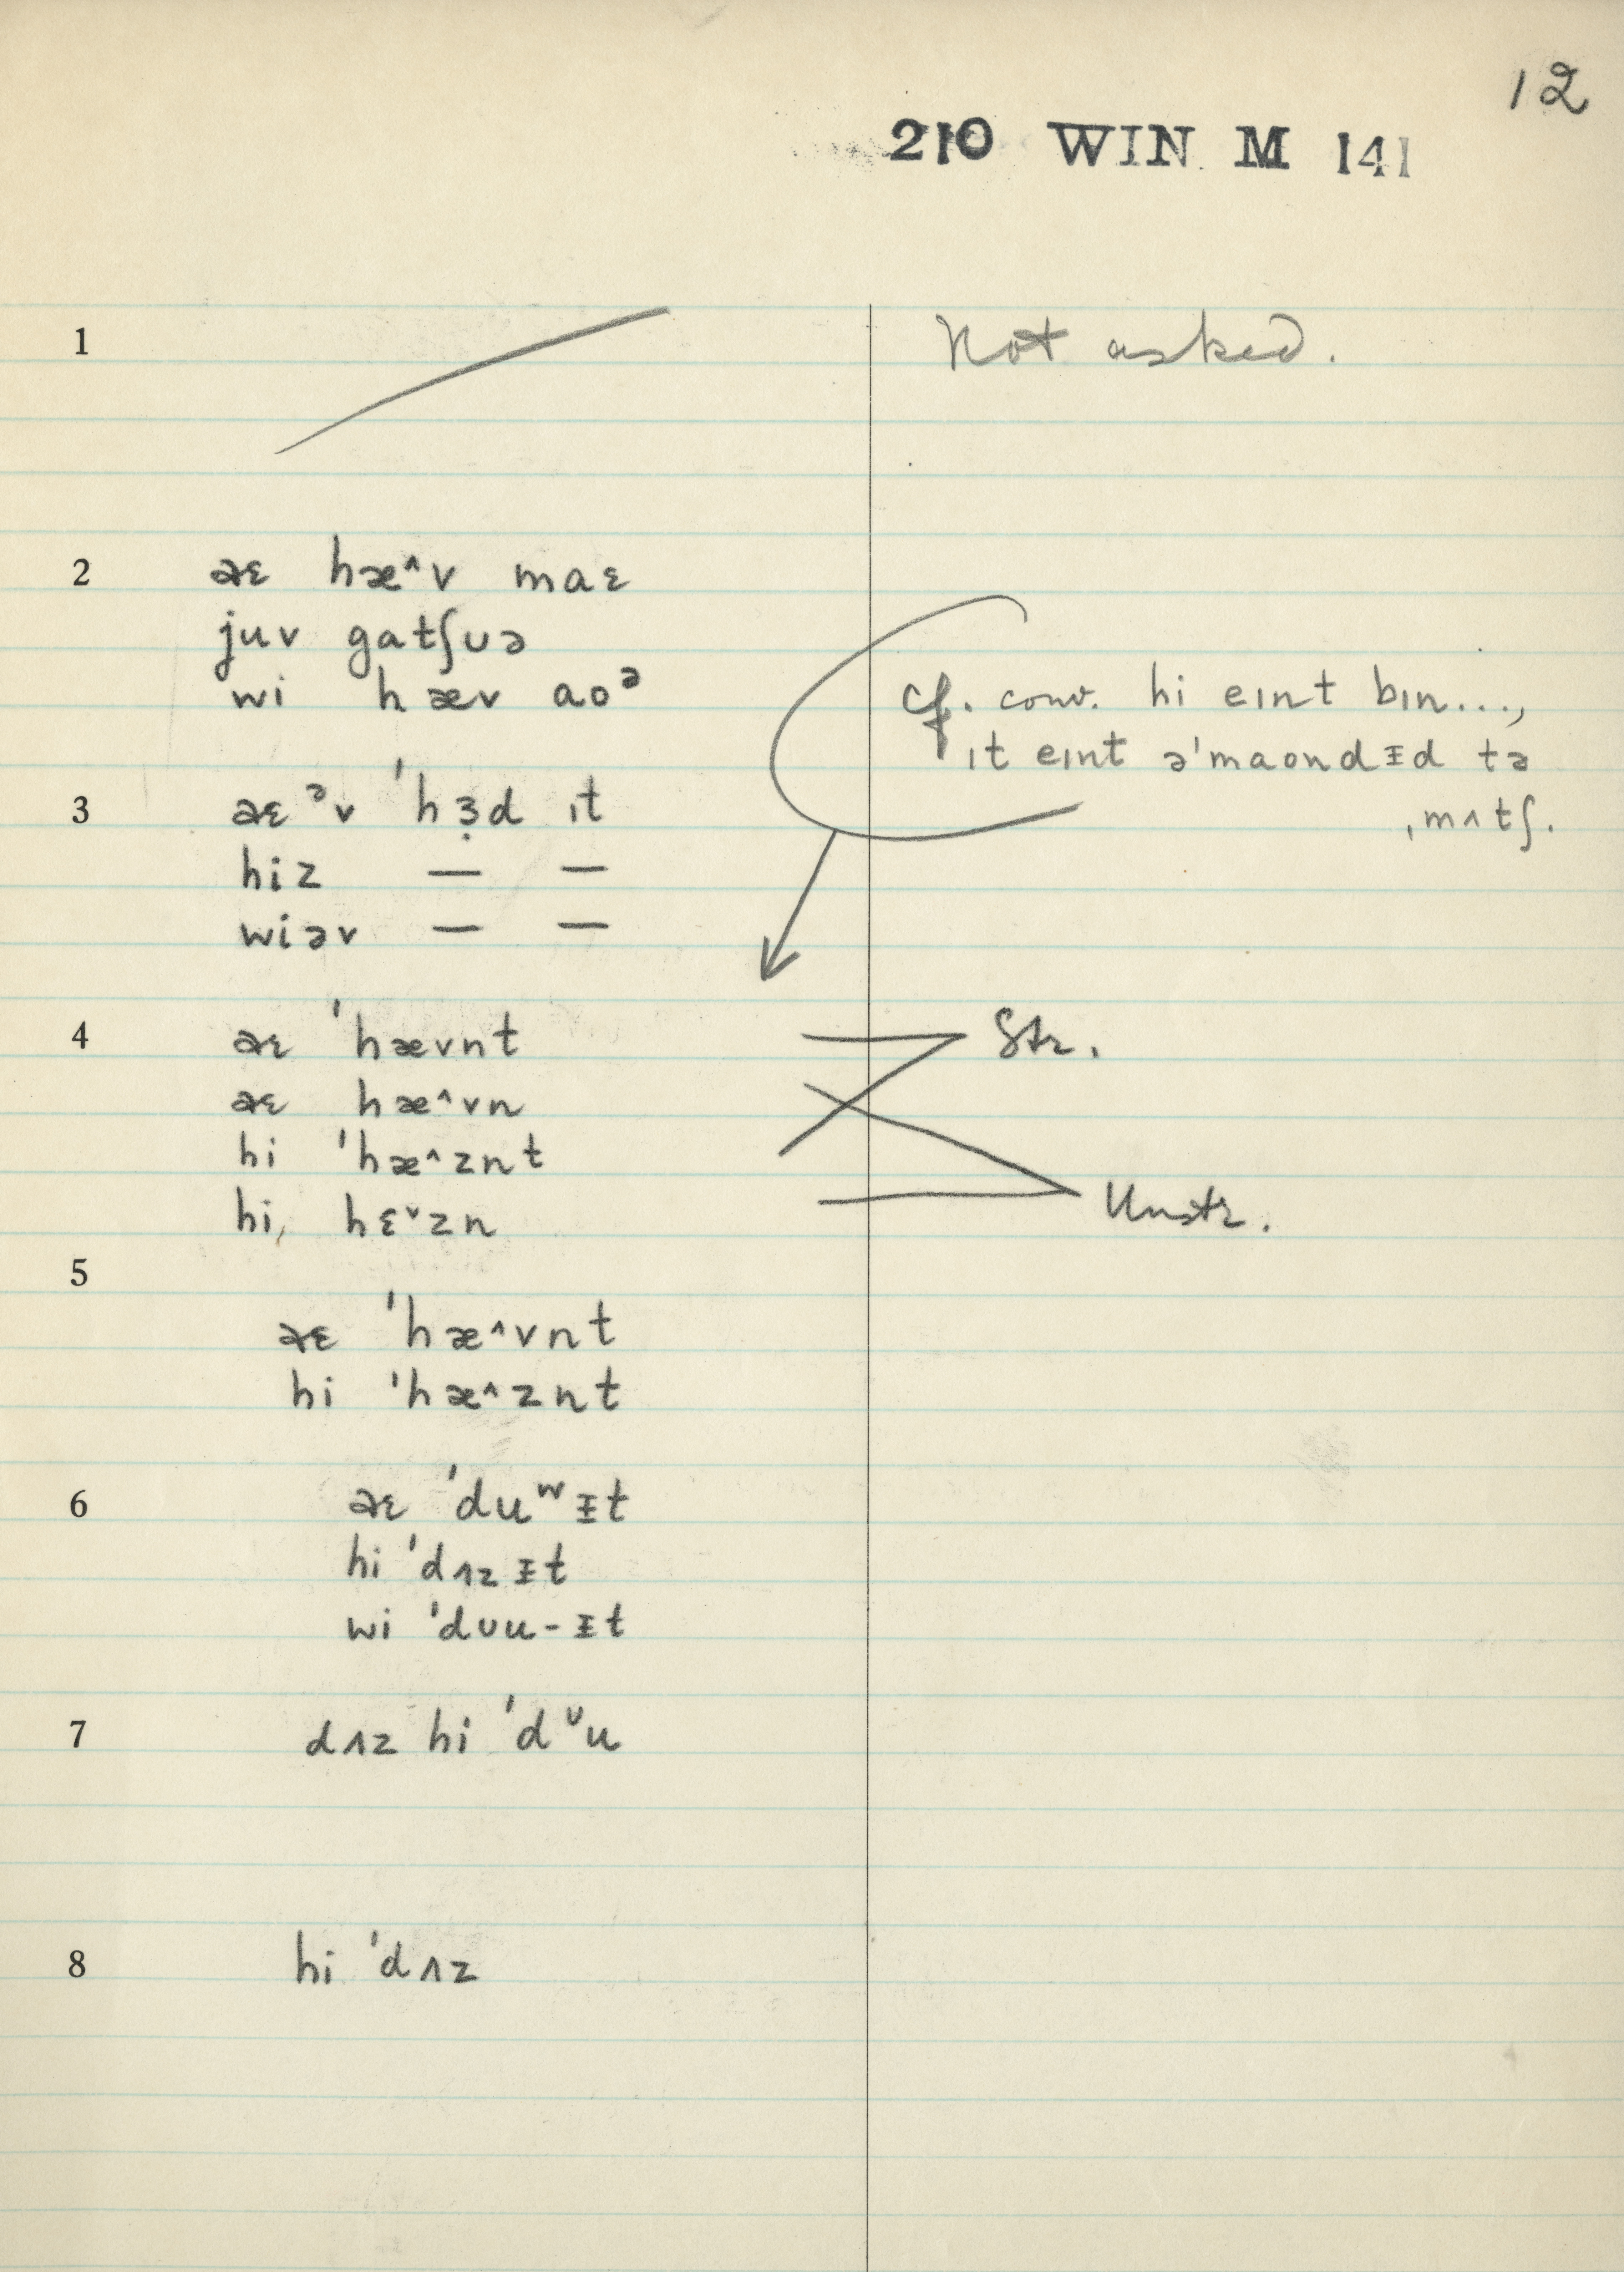 12
210 WIN M 141
1 Not asked.
2 əɛ hæ^v maɛ
juv gatʃʊə
wi hæv aoᵊ
cf. conv. hi eɪnt bɪn...,
ɪt eɪnt ə'maondᵻd tə
ˌmʌtʃ.
3 əɛᵊv 'hɜ̣d ɪt
hiz — —
wiəv — —
4 əɛ 'hævnt
Str.
əɛ hæ^vn
hi 'hæ^znt
hi, hɛˇzn
Unstr.
5
əɛ 'hæ^vnt
hi 'hæ^znt
6 əɛ 'duʷᵻt
hi 'dʌzᵻt
wi 'dʊu-ᵻt
7 dʌz hi 'dᶷu
8 hi 'dʌz